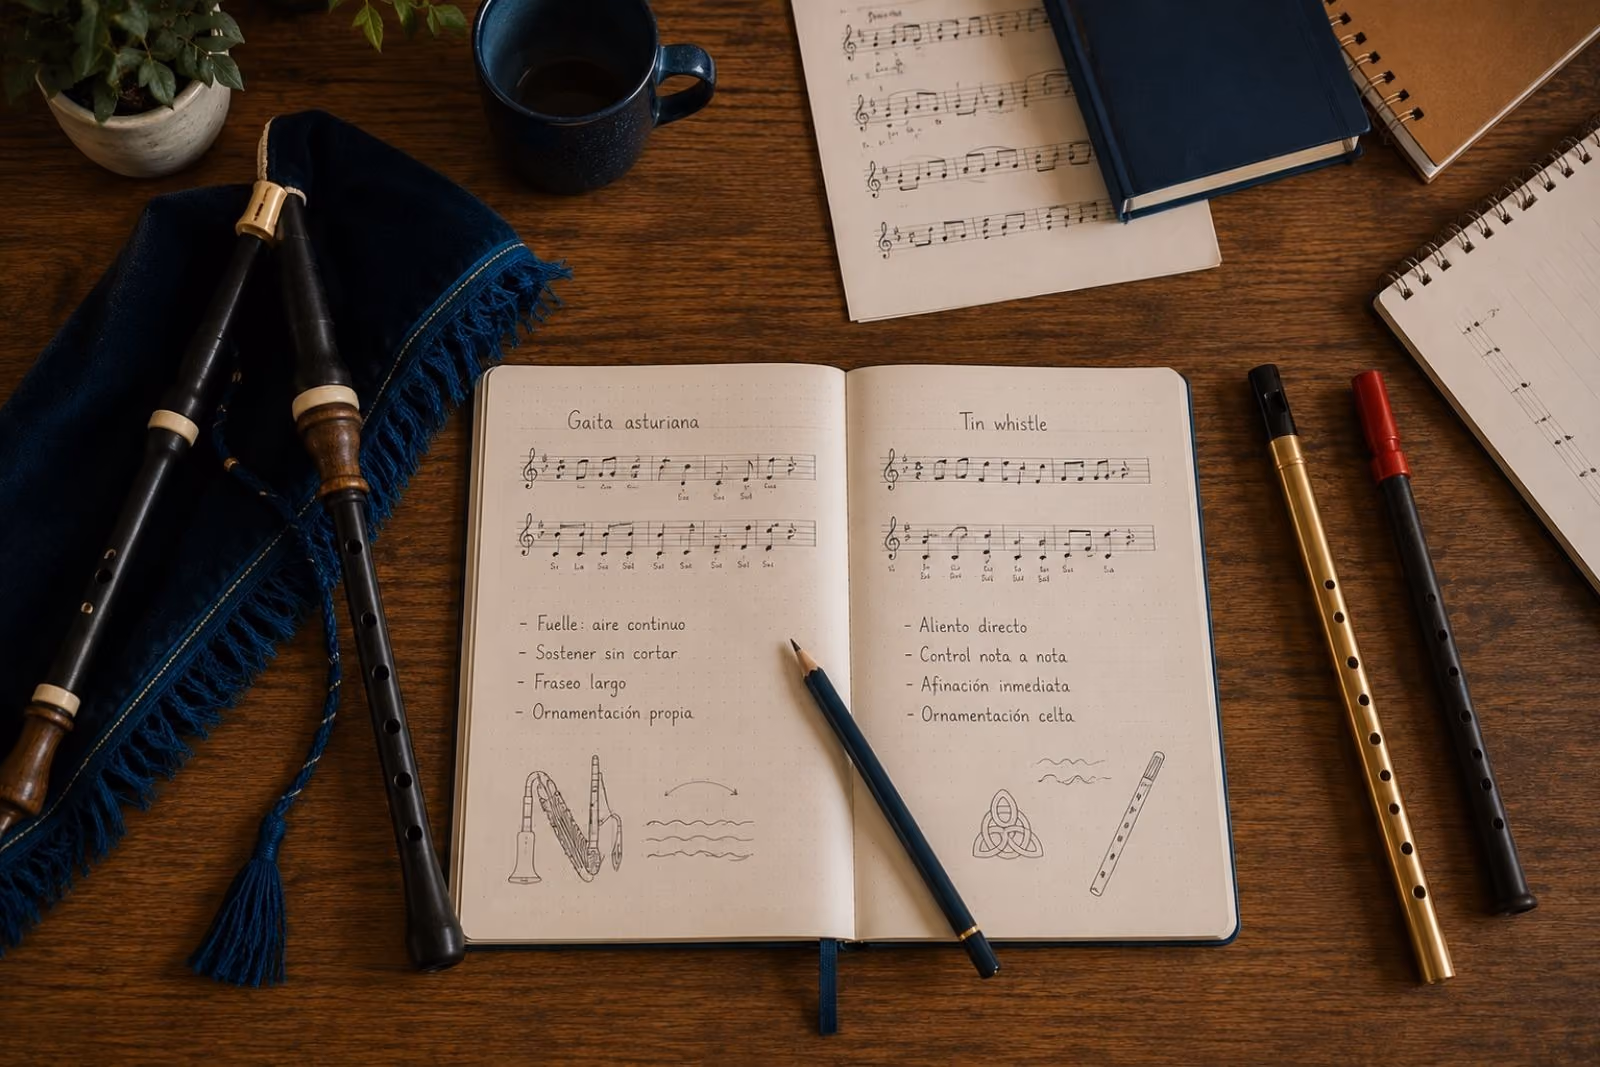 Gaita asturiana
Si La Sol Sol Sol
- Fuelle: aire continuo
- Sostener sin cortar
- Fraseo largo
- Ornamentación propia
Tin whistle
- Aliento directo
- Control nota a nota
- Afinación inmediata
- Ornamentación celta